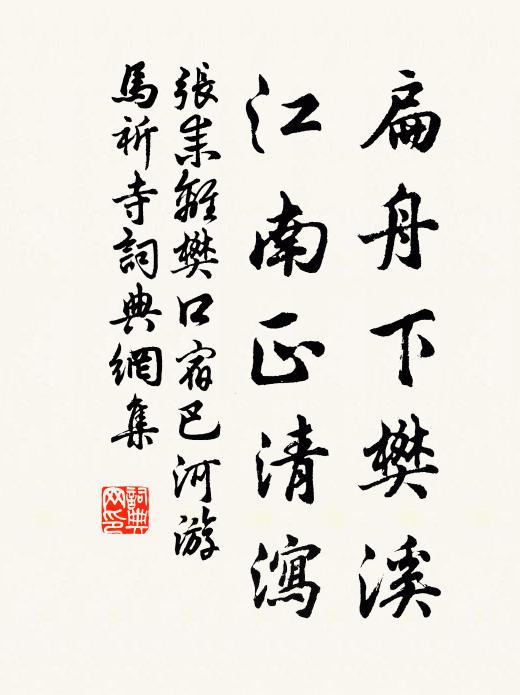 扁舟下樊溪
江南正清瀉
張耒離樊口宿巴河游
馬祈寺詞典網集
詞典网印